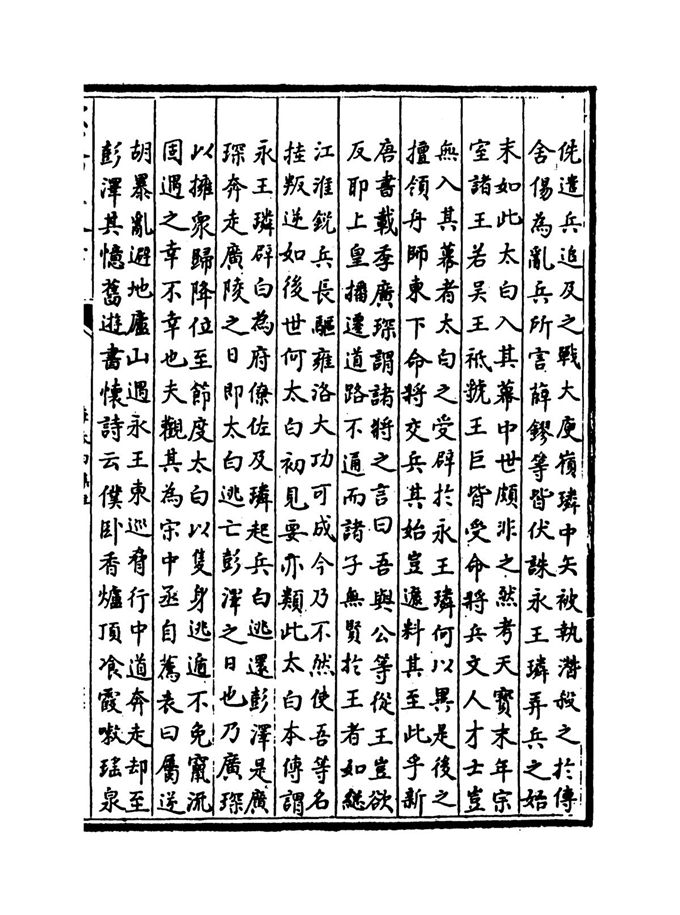 侁遣兵追及之戰大庾嶺璘中矢被執潛殺之於傳
舍傷為亂兵所害薛鏐等皆伏誅永王璘弄兵之始
末如此太白入其幕中世頗非之然考天寶末年宗
室諸王若吳王祗虢王巨皆受命將兵文人才士豈
無入其幕者太白之受辟於永王璘何以異是後之
擅領舟師東下命將交兵其始豈遽料其至此乎新
唐書載季廣琛謂諸將之言曰吾與公等從王豈欲
反耶上皇播遷道路不通而諸子無賢於王者如總
江淮銳兵長驅雍洛大功可成今乃不然使吾等名
挂叛逆如後世何太白初見要亦類此太白本傳謂
永王璘辟白為府僚佐及璘起兵白逃還彭澤是廣
琛奔走廣陵之日即太白逃亡彭澤之日也乃廣琛
以擁衆歸降位至節度太白以隻身逃遁不免竄流
固遇之幸不幸也夫觀其為宋中丞自薦表曰屬逆
胡暴亂避地廬山遇永王東巡脅行中道奔走却至
彭澤其憶舊遊書懷詩云僕卧香爐頂飡霞嗽瑤泉